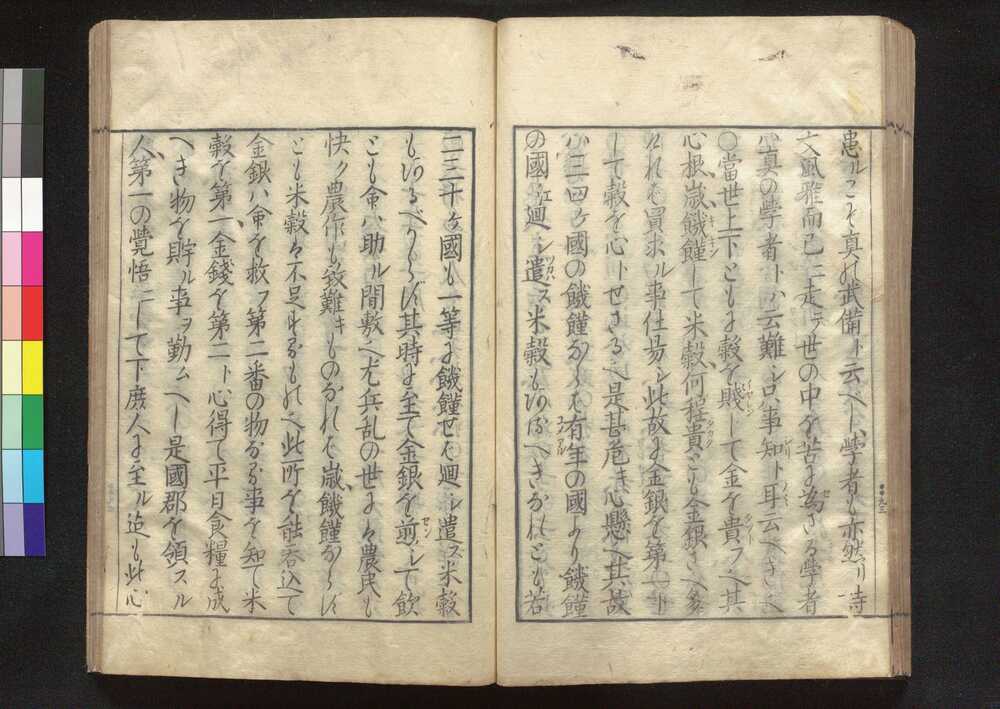 愚ルこそ真の武備ト云ヘし学者も亦然り詩
文風雅而己ニ走テ世の中を苦に為さる学者
ハ真の学者トハ云難シ只事知ト耳云ヘき也
〇當世上下ともに穀を賤して金を貴フ其
心根歳饑饉して米穀何程貴とも金銀さへ多
けれは買求ル事仕易シ此故に金銀を第一ト
して穀を心トせさる也是甚危キ心懸也其故
ハ三四ケ國の饑饉ならは有年の國より饑饉
の國江廻シ遣ス米穀もあるへきなれとも若
二三十ケ國も一等に饑饉せは廻シ遣ス米穀
もあるべからず其時に至て金銀を煎して飲
とも命ハ助ル間敷也尤兵乱の世にハ農民も
快ク農作も致難キものなれは歳饑饉ならす
とも米穀ハ不足するもの也此所を能呑込て
金銀ハ命を救フ第二番の物なる事を知て米
穀を第一金錢を第二ト心得て平日食糧に成
へき物を貯ル事ヲ勤ムヘし是國郡を領スル
人第一の覺悟ニして下庶人に至ル迠も此心
イヤシン
タツトフ
キキン
タカク
シリ
ノミ
ユウ子ン
ツカハ
セン